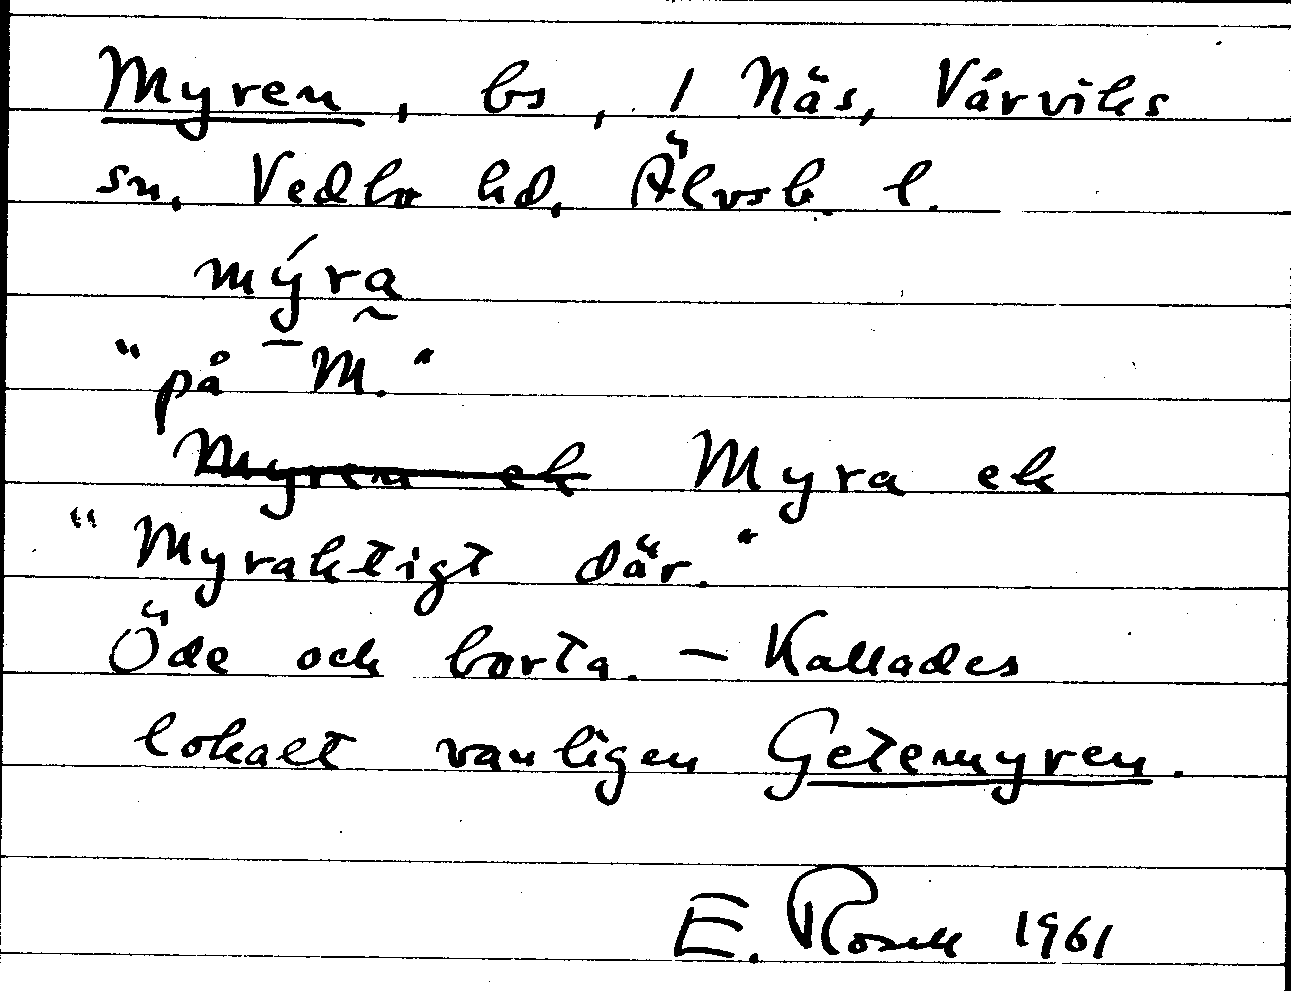 Myren, bs, 1 Näs, Vårviks
sn, Vedbo hd, Älvsb. l.
mýra
"på M."
Myren ek Myra ek
"Myraktigt där."
Öde och borta. – Kallades
lokalt vanligen Getemyren.
E. Rosell 1961